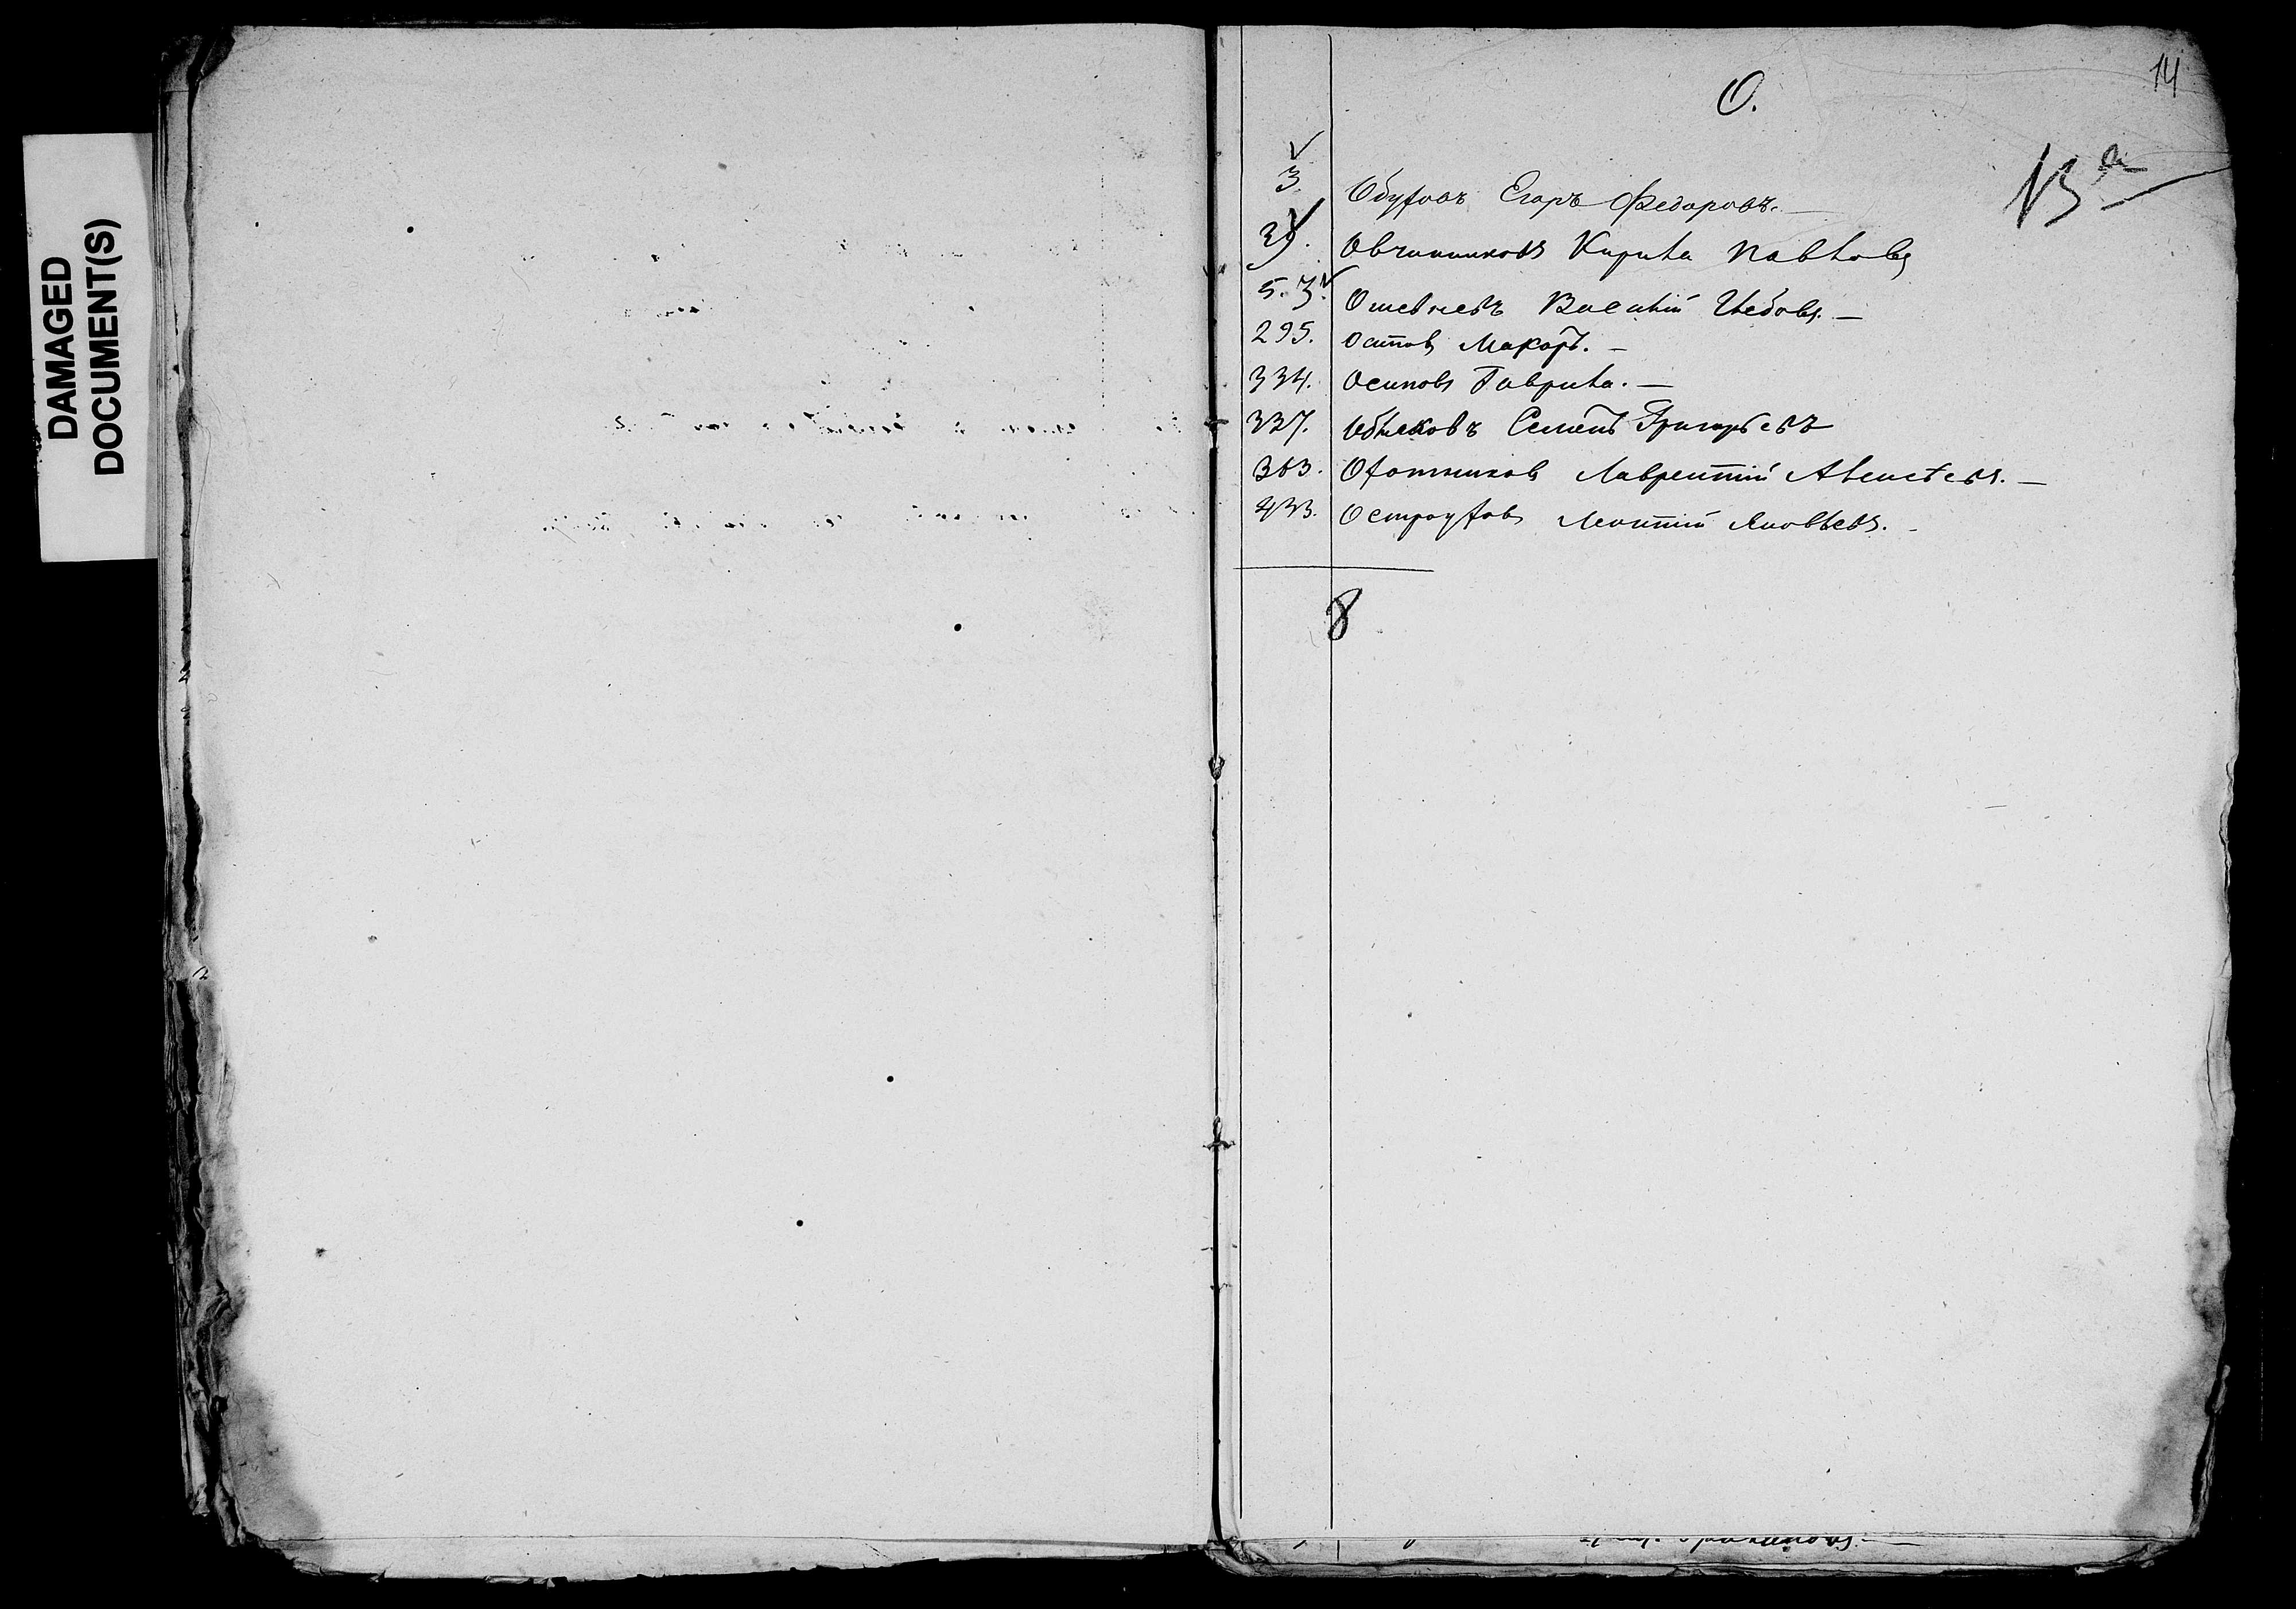 DAMAGED
DOCUMENT(S)
14
О.
13
3. Обуховъ Егоръ Федоровъ. —
39. Овчинниковъ Кирила Павловъ
5. 3. Василій Глебовъ. —
295. Осиповъ Макаръ. —
334. Осиповъ Гаврила. —
337. Семенъ Григорьевъ
363. Охотниковъ Лаврентій Алексѣевъ. —
433. Остроуховъ Леонтій Яковлевъ. —
8